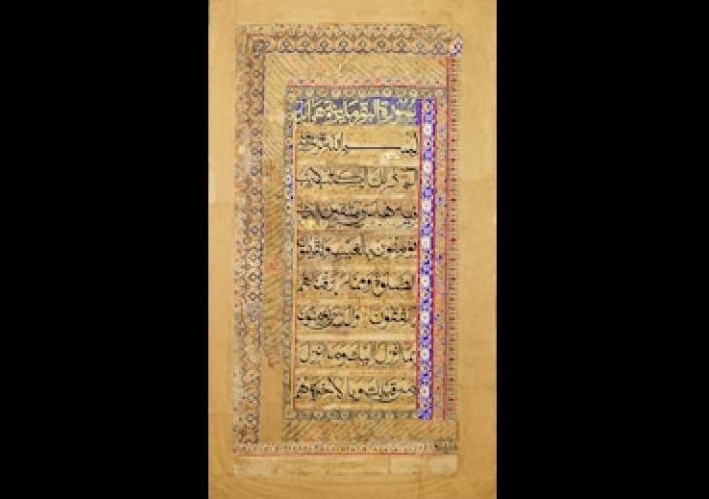 سورة البقرة
بسم الله الرحمن الرحيم
الم ذلك الكتب لاريب
فيه هدى للمتقين الذين
يؤمنون بالغيب ويقيمون
الصلوة ومما رزقناهم
ينفقون والذين يؤمنون
بما انزل اليك وما انزل
من قبلك وبالاخرة هم